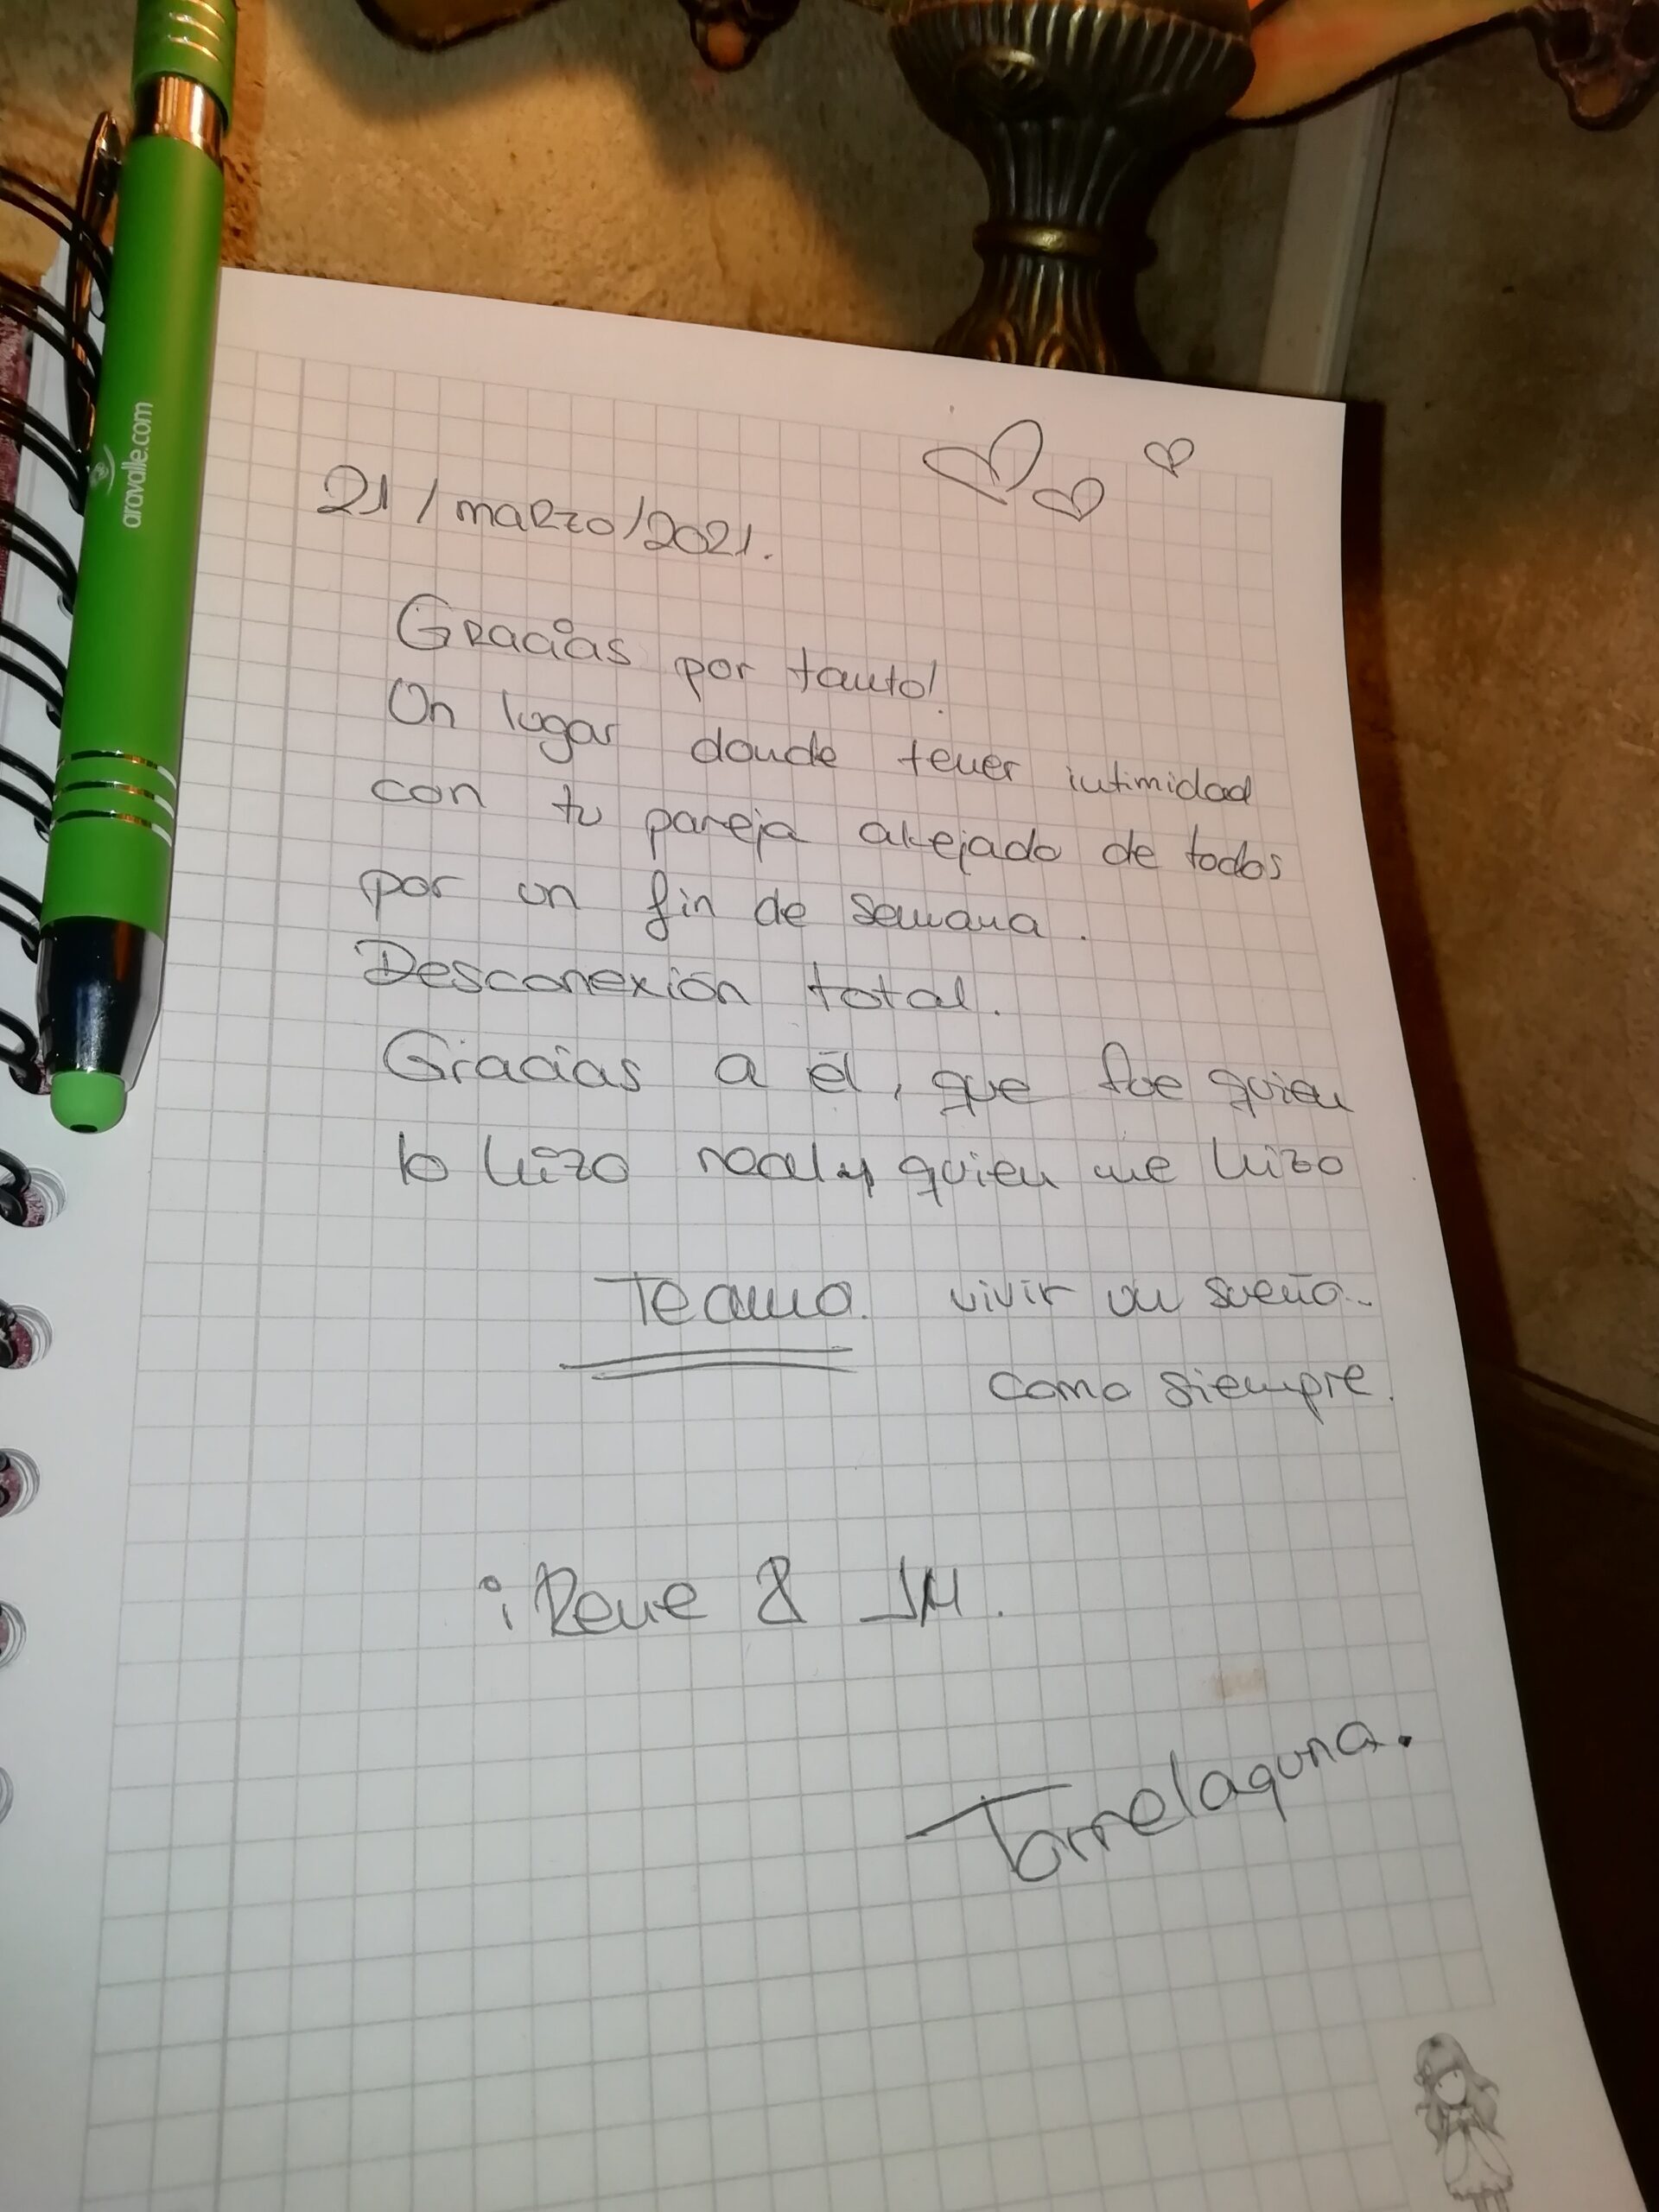 aravalle.com
21/marzo/2021.
Gracias por tanto!
Un lugar donde tener intimidad
con tu pareja alejado de todos
por un fin de semana.
Desconexión total.
Gracias a él, que fue quien
lo hizo real y quien me hizo
Te amo. vivir un sueño..
como siempre.
iRene & JM.
Torrelaguna.